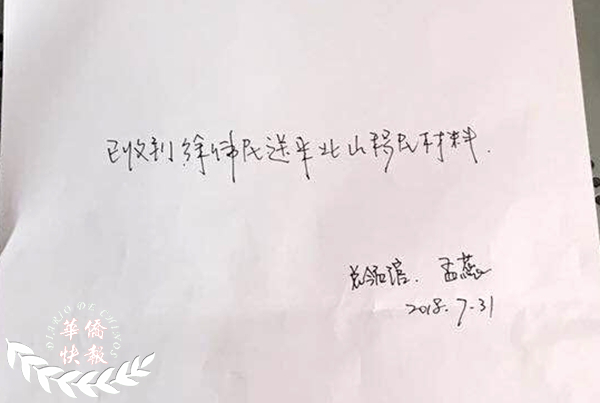 已收到徐伟民送来北山移民材料.
总领馆. 孟燕
2018.7-31
DIARIO DE CHINOS
華僑
快報